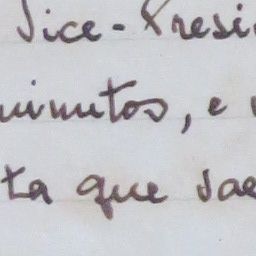 Vice-Presi
minutos, e
ta que sae